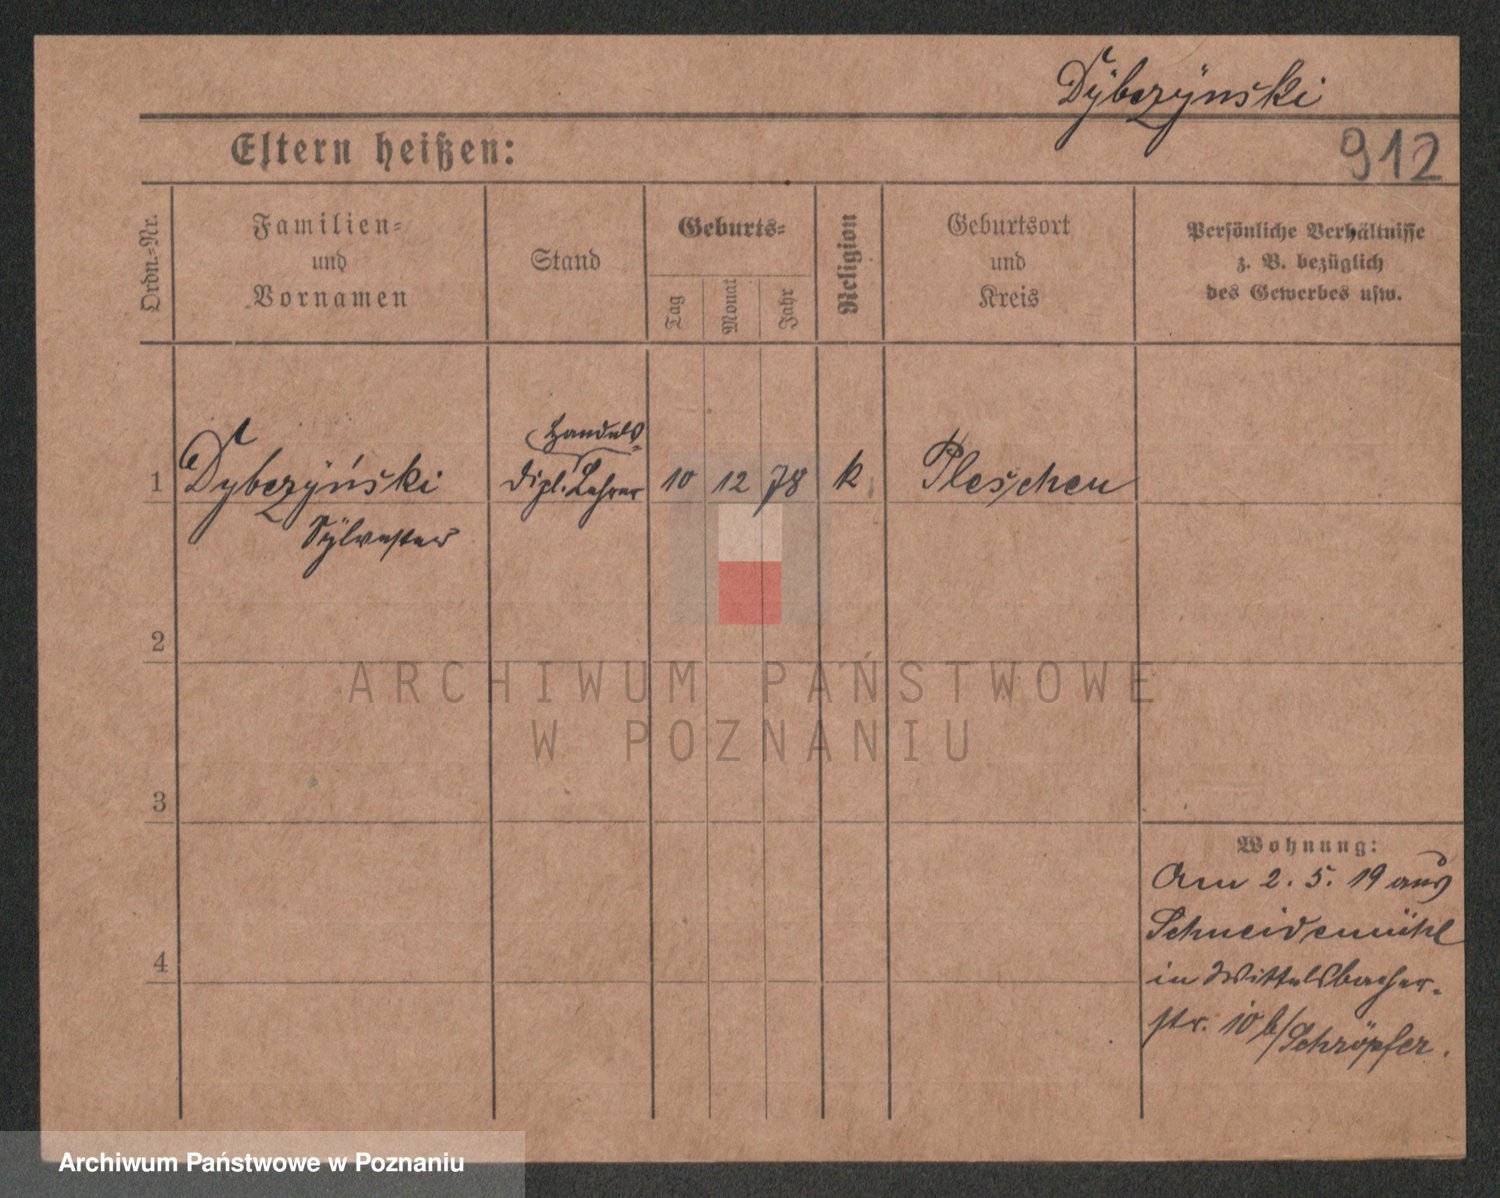 Dÿbczÿnski
Eltern heißen:
912
Ordn.-Nr.
Familien-
und
Vornamen
Stand
Geburts-
Tag
Monat
Jahr
Religion
Geburtsort
und
Kreis
Persönliche Verhältnisse
z. B. bezüglich
des Gewerbes usw.
Handels-
1 Dybczÿński dipl. Lehrer 10 12 78 k Pleschen
Sÿlvester
2
ARCHIWUM PAŃSTWOWE
W POZNANIU
3
Wohnung:
Am 2. 5. 19 aus
Schneidemühl
4
in Wittelsbacher-
str. 10 b/Schröpfer.
Archiwum Państwowe w Poznaniu